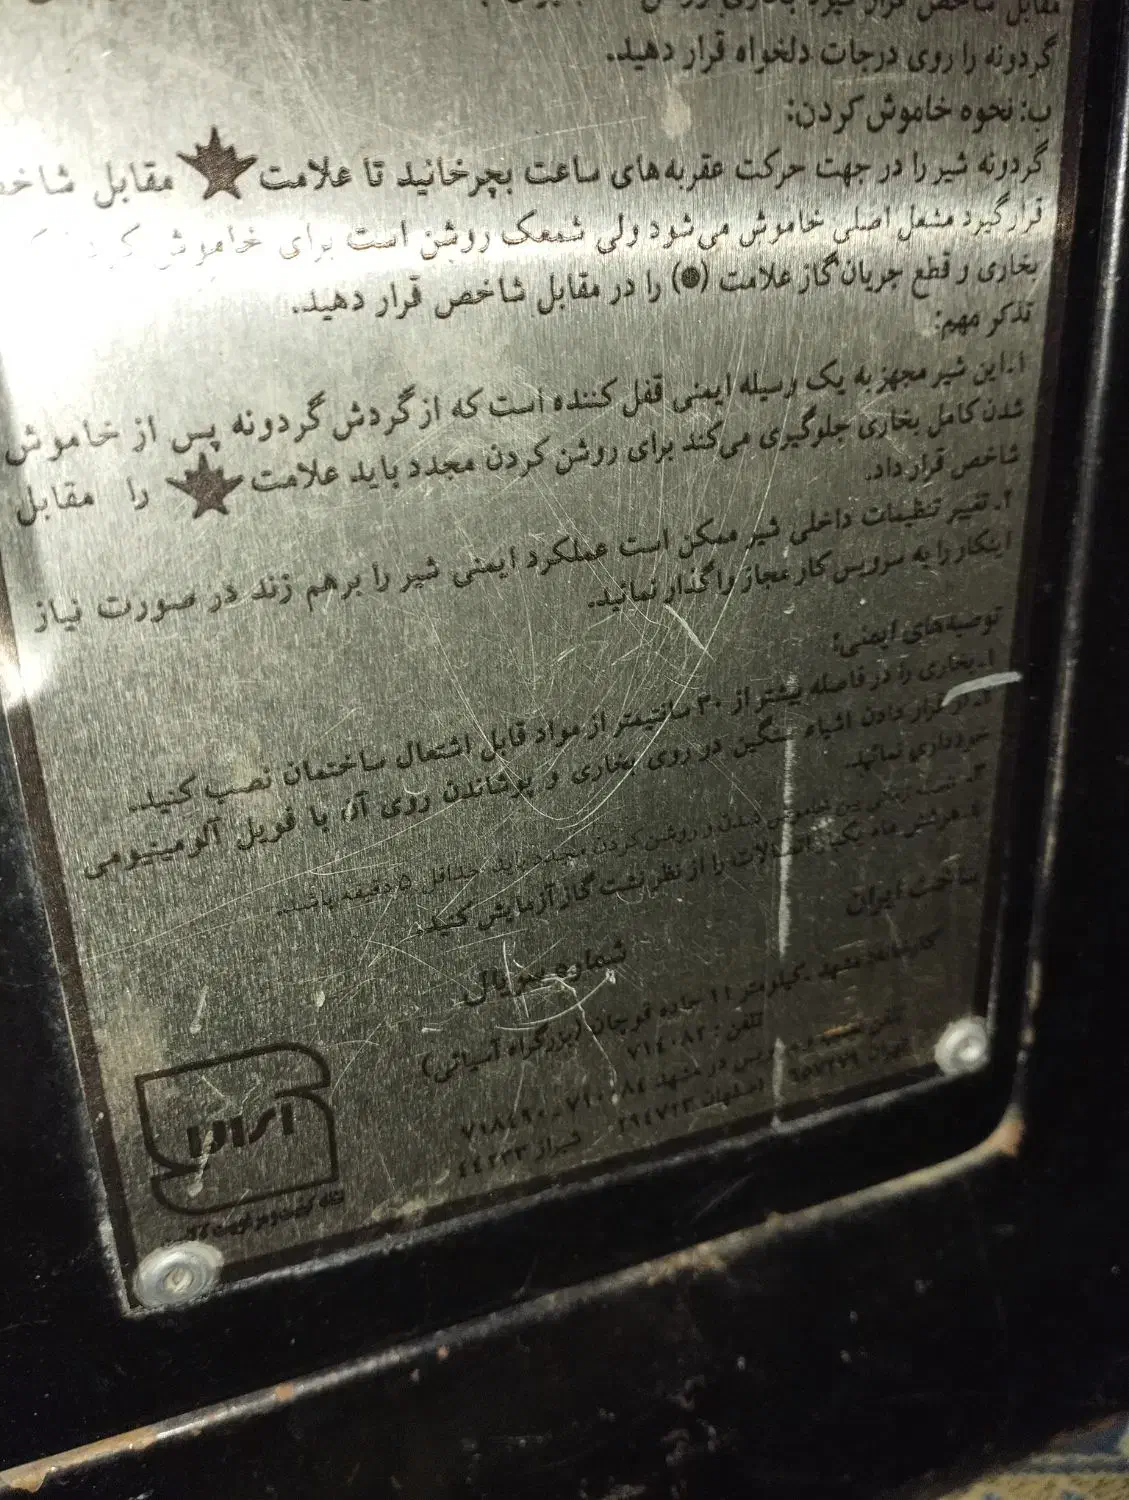 گردونه را روی درجات دلخواه قرار دهید.
ب: نحوه خاموش کردن:
گردونه شیر را در جهت حرکت عقربه‌های ساعت بچرخانید تا علامت مقابل شاخص
قرار گیرد مشعل اصلی خاموش می‌شود ولی شمعک روشن است برای خاموش کردن
بخاری و قطع جریان گاز علامت (●) را در مقابل شاخص قرار دهید.
تذکر مهم:
۱ـ این شیر مجهز به یک وسیله ایمنی قفل کننده است که از گردش گردونه پس از خاموش
شدن کامل بخاری جلوگیری می‌کند برای روشن کردن مجدد باید علامت را مقابل
شاخص قرار داد.
۲ـ تغییر تنظیمات داخلی شیر ممکن است عملکرد ایمنی شیر را برهم زند در صورت نیاز
اینکار را به سرویس کار مجاز واگذار نمائید.
توصیه‌های ایمنی:
۱ـ بخاری را در فاصله بیشتر از ۳۰ سانتیمتر از مواد قابل اشتعال ساختمان نصب کنید.
۲ـ از قرار دادن اشیاء سنگین در روی بخاری و پوشاندن روی آن با فویل آلومینیومی
خودداری نمائید.
۳ـ زمانی بین خاموش شدن و روشن کردن مجدد باید حداقل ۵ دقیقه باشد.
۴ـ هر شش ماه یکبار اتصالات را از نظر نشت گاز آزمایش کنید.
ساخت ایران
شماره سریال
کارخانه: مشهد ـ کیلومتر ۱۱ جاده قوچان (بزرگراه آسیائی)
تلفن: ۷۱٤۰۸۲
تلفن نصب و سرویس در مشهد
تهران اصفهان
شیراز